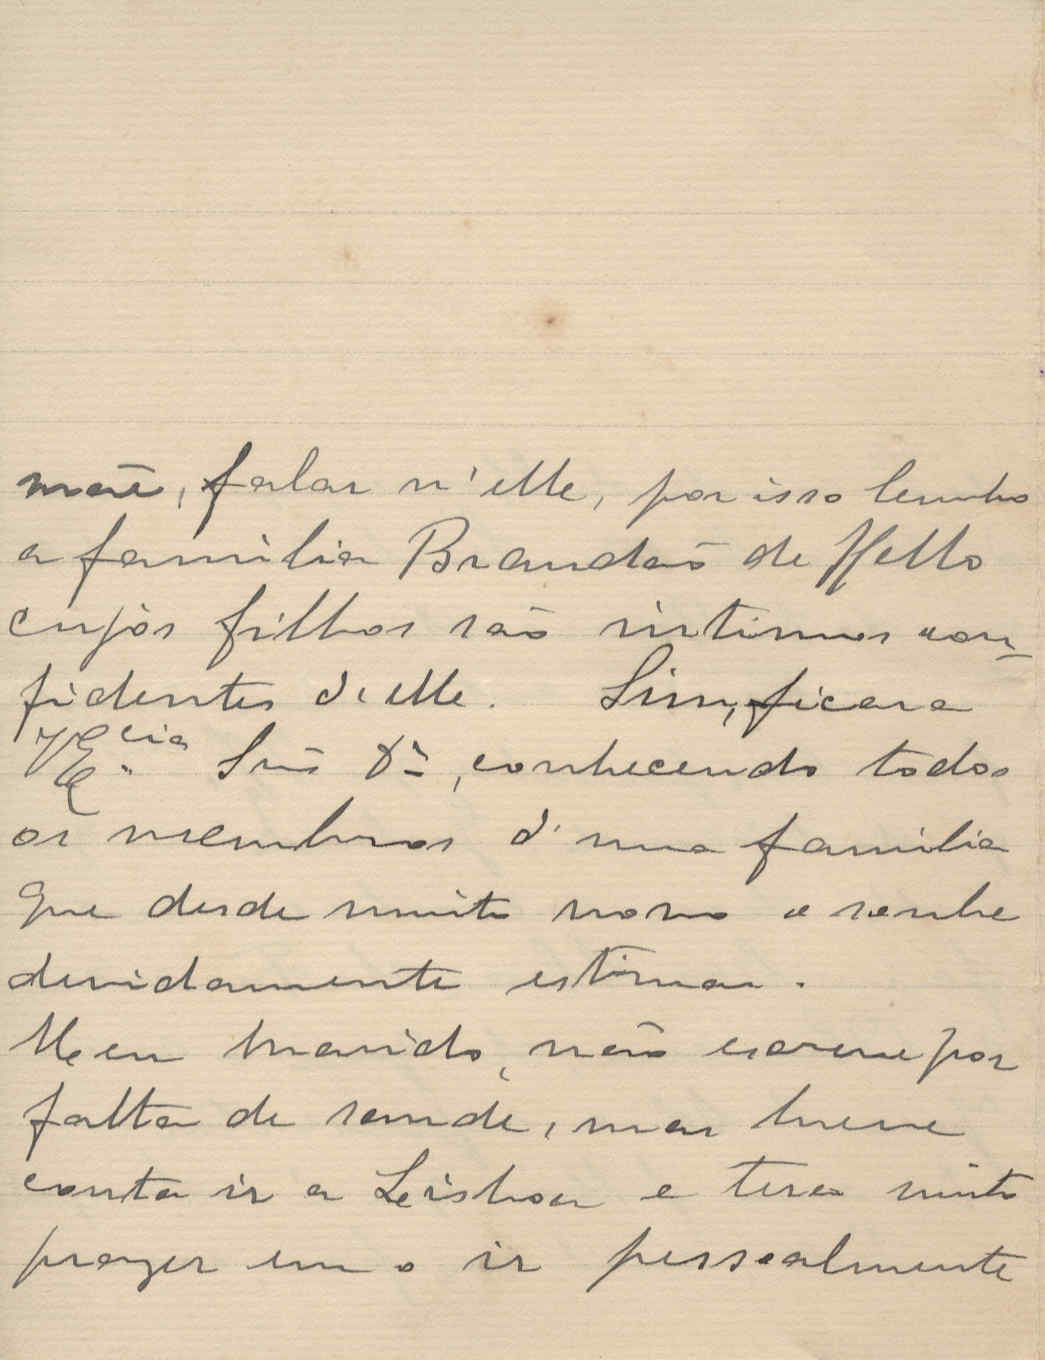 mãe, falar n'elle, por isso lembro
a familia Brandão de Mello
cujos filhos são intimos con-
fidentes d'elle. Sim, ficará
V Ex.cia Snr Dr, conhecendo todos
os membros d'uma familia
que desde muito novo o soube
devidamente estimar.
Meu marido, não escreve por
falta de saude, mas breve
conta ir a Lisboa e terá muito
prazer em o ir pessoalmente